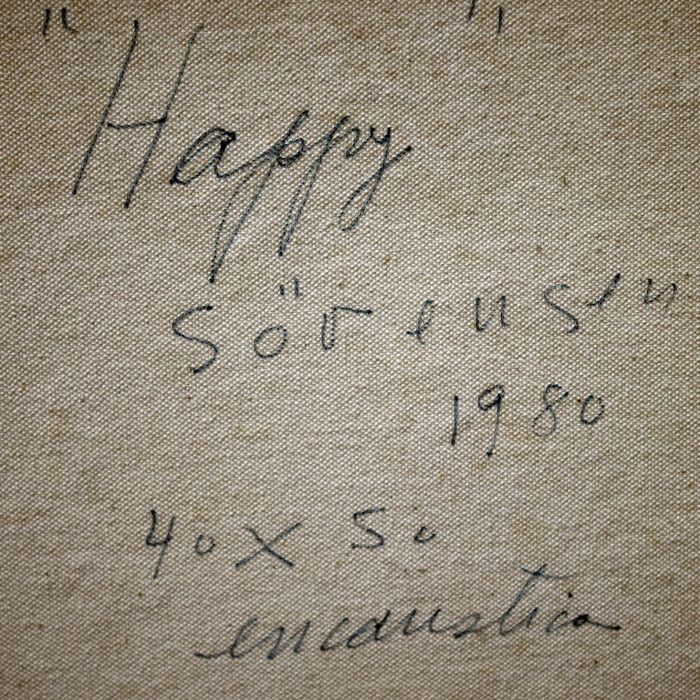 "Happy"
Sörensen
1980
40 x 50
encaustica